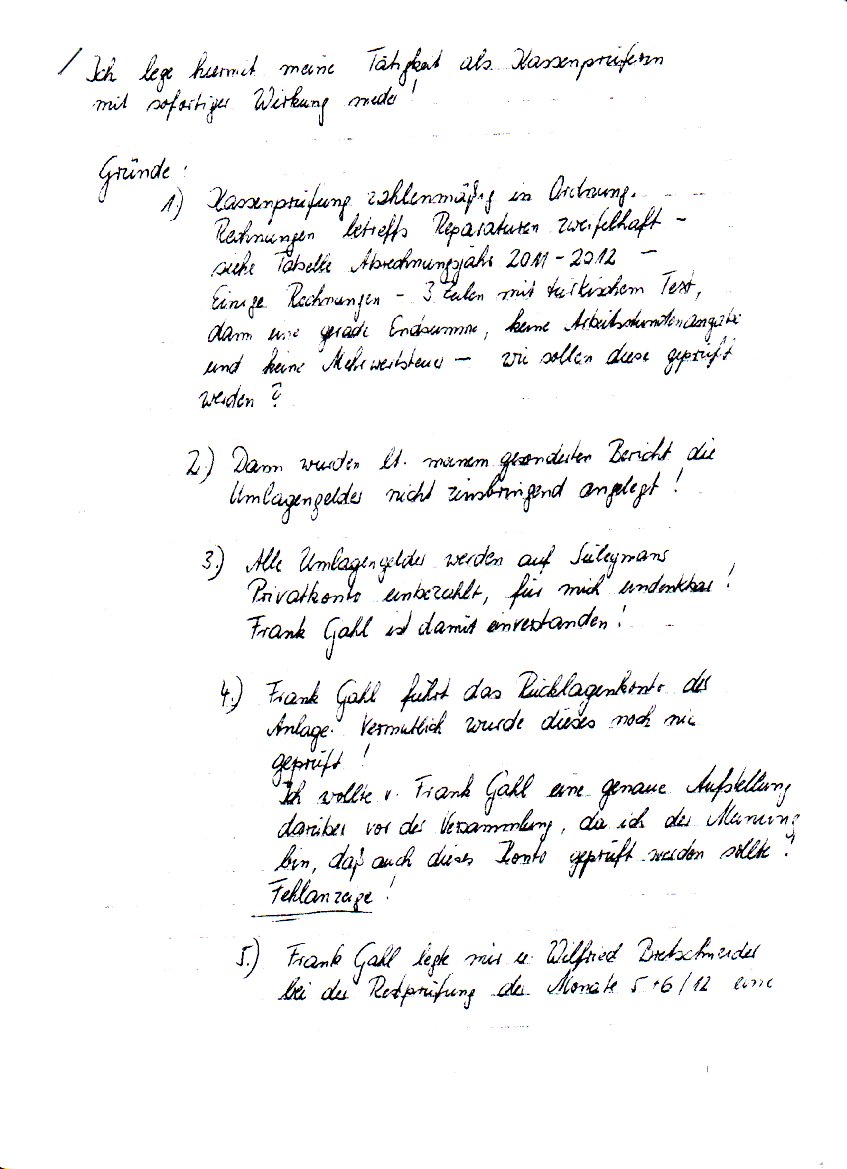 / Ich lege hiermit meine Tätigkeit als Kassenprüferin
mit sofortiger Wirkung nieder!
Gründe:
1) Kassenprüfung zahlenmäßig in Ordnung.
Rechnungen betreffs Reparaturen zweifelhaft -
siehe Tabelle Abrechnungsjahr 2011-2012 -
Einige Rechnungen - 3 Zeilen mit türkischem Text,
dann eine gerade Endsumme, keine Arbeitsstundenangabe
und keine Mehrwertsteuer - wie sollen diese geprüft
werden?
2.) Dann wurden lt. meinem gesonderten Bericht die
Umlagengelder nicht zinsbringend angelegt!
3.) Alle Umlagengelder werden auf Süleymans
Privatkonto einbezahlt, für mich undenkbar!
Frank Gahl ist damit einverstanden!
4.) Frank Gahl führt das Rücklagenkonto der
Anlage. Vermutlich wurde dieses noch nie
geprüft!
Ich wollte v. Frank Gahl eine genaue Aufstellung
darüber vor der Versammlung, da ich der Meinung
bin, daß auch dieses Konto geprüft werden sollte!
Fehlanzeige!
5.) Frank Gahl legte mir u. Wilfried Bretschneider
bei der Restprüfung der Monate 5+6/12 eine